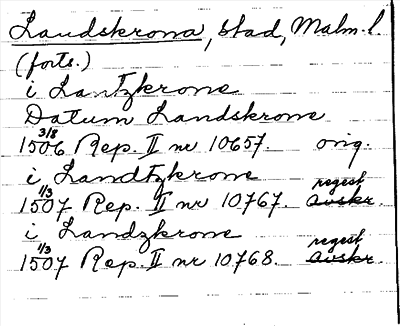 Landskrona, stad, Malm. l.
(forts.)
i Lantzkrone
Datum Landskrone
1506 3/8 Rep. II nr 10657. orig.
i Landtzkrone
1507 1/3 Rep. II nr 10767. regest avskr.
i Landzkrone
1507 1/3 Rep. II nr 10768. regest avskr.